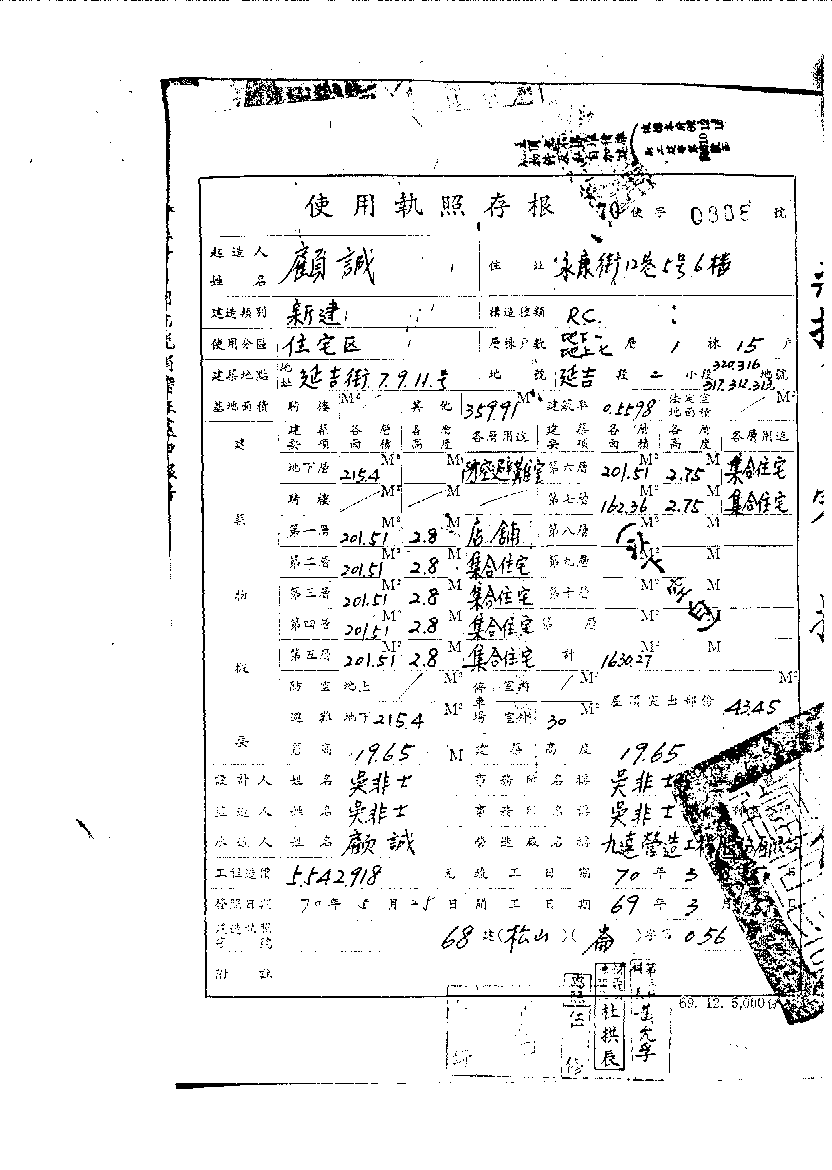 使用執照存根 70 使字 0308 號
起造人姓名 顧誠 住址 永康街12巷5号6樓
建造類別 新建 構造種類 RC.
使用分區 住宅区 層棟戶數 地下一 地上七 層 1 棟 15 戶
建築地點 地址 延吉街7.9.11.号 地號 延吉 段 二 小段 320.316 317.312.313 地號
基地面積 騎樓 M² 其他 359.91 M² 建蔽率 0.5598 法定空地面積 M²
建築要項 各層面積 各層高度 各層用途 建築要項 各層面積 各層高度 各層用途
地下層 215.4 M² M 防空避難室 第六層 201.51 M² 2.75 M 集合住宅
騎樓 M² M 第七層 162.36 M² 2.75 M 集合住宅
第一層 201.51 M² 2.8 M 店舖 第八層 M² M
第二層 201.51 M² 2.8 M 集合住宅 第九層 M² M
第三層 201.51 M² 2.8 M 集合住宅 第十層 M² M
第四層 201.51 M² 2.8 M 集合住宅 第 層 M² M
第五層 201.51 M² 2.8 M 集合住宅 計 1630.27 M² M
建築物概要
防空 地上 M² 停車場 室內 M² 屋頂突出部份 43.45 M²
避難 地下 215.4 M² 室外 30 M²
簷高 19.65 M 建築高度 19.65
設計人 姓名 吳非士 事務所名稱 吳非士
監造人 姓名 吳非士 事務所名稱 吳非士
承造人 姓名 顧誠 營造廠名稱 九達營造工程
工程造價 5,542,918 元 竣工日期 70 年 3
發照日期 70 年 5 月 25 日 開工日期 69 年 3 月
建造執照字號 68 建(松山)(崙)字 056
附註
69. 12. 5,000
杜拱辰